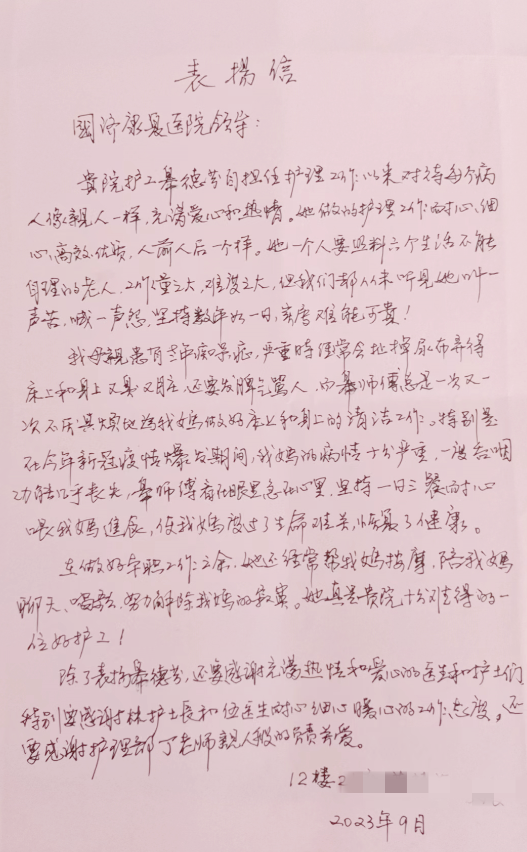 表揚信
國济康复医院领导:
貴院护工綦德芬自担任护理工作以来对待每个病
人像親人一样,充满爱心和热情。她做的护理工作耐心、细
心、高效、优质,人前人后一个样。她一个人要照料六个生活不能
自理的老人,工作量之大,难度之大,但我们都从未听見她叫一
声苦,喊一声怨,坚持数年如一日,实屬难能可貴!
我母親患有老年痴呆症,严重時经常会扯掉尿布弄得
床上和身上又臭又脏,还要发脾气罵人,而綦师傅总是一次又一
次不厌其烦地為我妈做好床上和身上的清洁工作。特别是
在今年新冠疫情爆发期间,我妈的病情十分严重,一度吞咽
功能几乎丧失,綦师傅看在眼里急在心里,坚持一日三餐耐心
喂我妈進食,使我妈度过了生命难关,恢复了健康。
在做好本职工作之余,她还经常帮我妈按摩,陪我妈
聊天、唱歌,努力解除我妈的寂寞。她真是貴院十分难得的一
位好护工!
除了表扬綦德芬,还要感谢充满热情和爱心的医生和护士们
特别要感谢林护士长和伍医生耐心细心暖心的工作态度。还
要感谢护理部丁老师親人般的关爱。
12楼2
2023年9月